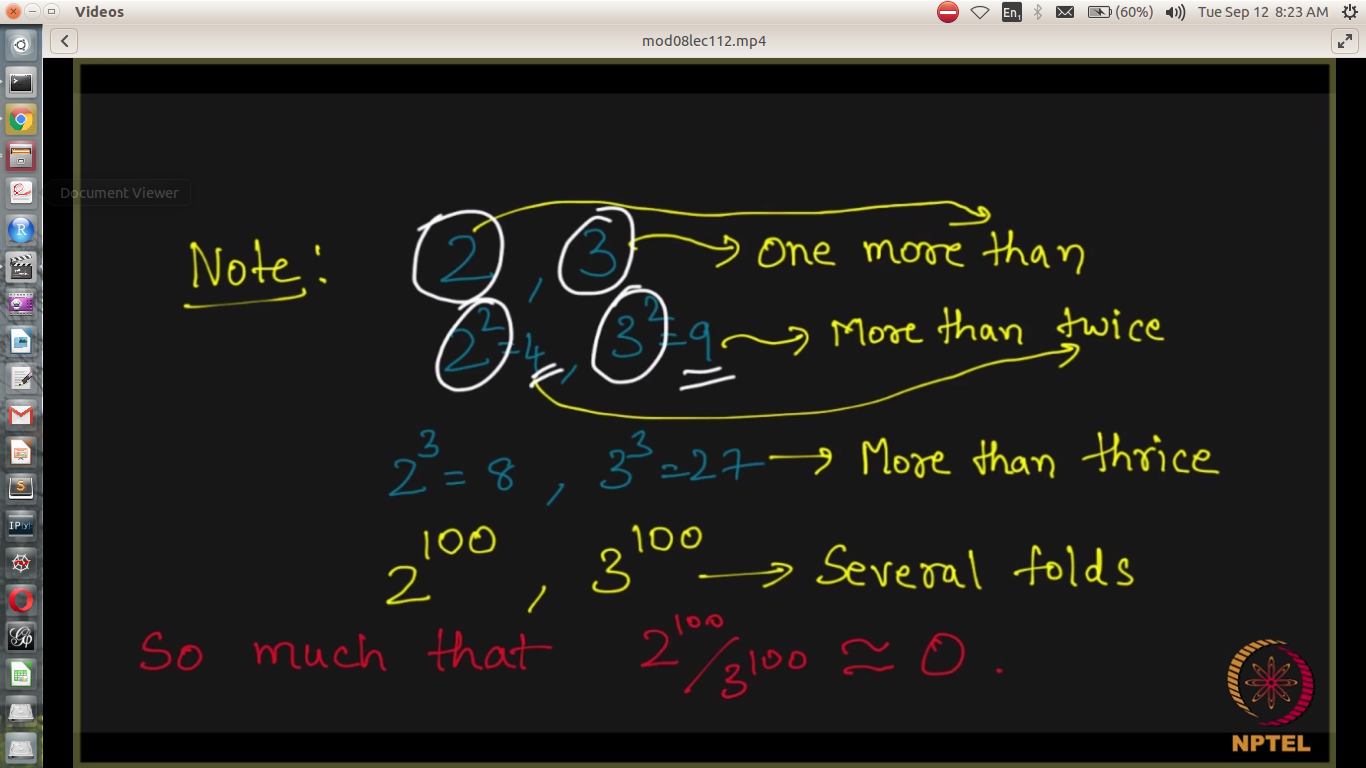 Videos
En1
(60%)
Tue Sep 12 8:23 AM
mod08lec112.mp4
Document Viewer
Note: 2 , 3 → One more than
2² = 4 , 3² = 9 → More than twice
2³ = 8 , 3³ = 27 → More than thrice
2¹⁰⁰ , 3¹⁰⁰ → Several folds
So much that 2¹⁰⁰/3¹⁰⁰ ≈ 0 .
NPTEL